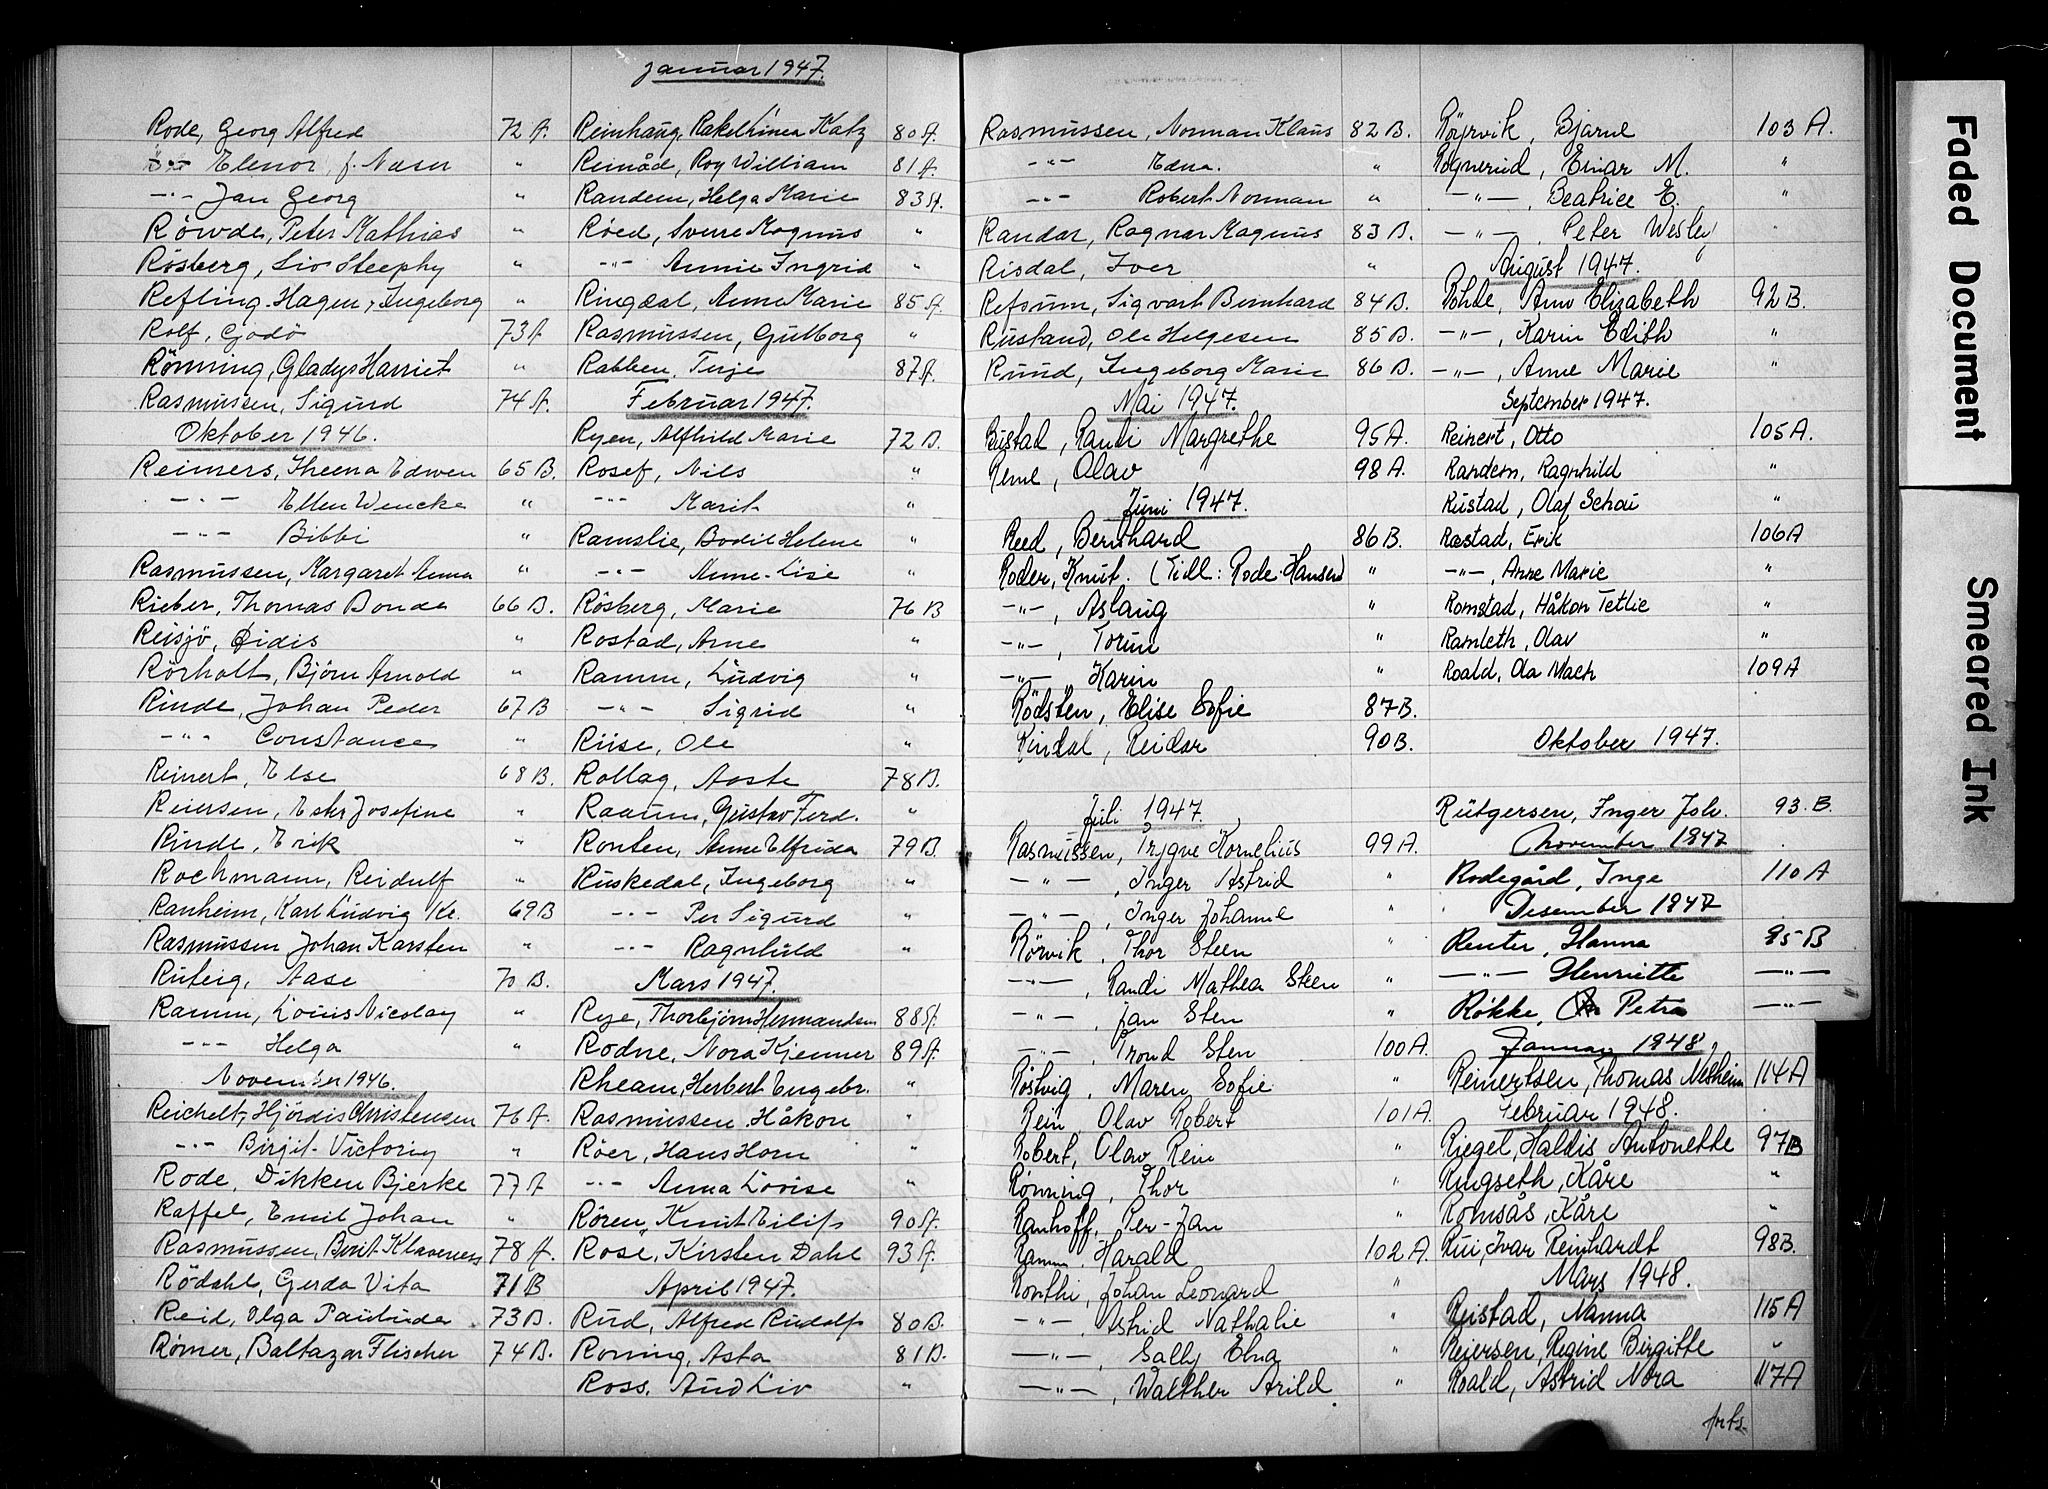 Rode, Georg Alfred 72 A.
-"- Elenor, f. Naser "
-"- Jan Georg "
Rövde, Peter Mathias "
Rösberg, Liv Steephy "
Refling-Hagen, Ingeborg "
Rolf, Gjodö 73 A
Rönning, Gladys Harriet "
Rasmussen, Sigurd 74 A.
Oktober 1946.
Reimers, Theena Edwen 65 B.
-"- Ellen Wencke "
-"- Bibbi "
Rasmussen, Margaret Anna "
Rieber, Thomas Bonde 66 B.
Reisjö, Didis "
Rörholt, Björn Arnold "
Rinde, Johan Peder 67 B
-"- Constance "
Reinert, Else 68 B.
Reiersen, Ester Josefine "
Rinde, Erik "
Rochmann, Reidulf "
Ranheim, Karl Ludvig Kr. 69 B
Rasmussen Johan Karsten "
Ruteig, Aase 70 B.
Ramm, Louis Nicolay "
-"- Helga "
November 1946.
Reichelt, Hjördis Christensen 76 A.
-"- Birgit-Victoria "
Rode, Dikken Bjerke 77 A
Raffel, Emil Johan "
Rasmussen, Berit Klaveness 78 A.
Rödahl, Gerda Vita 71 B
Reid, Olga Paulinda 73 B.
Rømer, Baltazar Flischer 74 B.
Januar 1947.
Reinhaug, Rakel Linea Katz 80 A.
Reinåd, Roy William 81 A.
Randem, Helga Marie 83 A.
Röed, Sverre Magnus "
-"- Annie Ingrid "
Ringdal, Anne Marie 85 A.
Rasmussen, Gulborg "
Rabben, Terje 87 A.
Februar 1947.
Ryen, Alfhild Marie 72 B.
Rosef, Nils "
-"- Marit "
Ramslie, Bodil Helene "
-"- Anne-Lise "
Rösberg, Marie 76 B
Rostad, Arne "
Ramm, Ludvig "
-"- Sigrid "
Riise, Ole "
Rollag, Aaste 78 B.
Raaum, Gustav Ferd. "
Ronten, Anne Elfrida 79 B.
Ruskedal, Ingeborg "
-"- Per Sigurd "
-"- Ragnhild "
Mars 1947.
Rye, Thorbjörn Hermansen 88 A.
Rodne, Nora Kjenner 89 A.
Rheam, Herbert Engebr. "
Rasmussen Håkon "
Röer, Hans Horn "
-"- Anna Lovise "
Røren, Knut Eilif 90 A.
Rose, Kirsten Dahl 93 A.
April 1947.
Rud, Alfred Rudolf 80 B.
Roning, Asta 81 B.
Ross, Aud Liv "
Rasmussen, Norman Klaus 82 B.
-"- Edna. "
-"- Robert Norman "
Randar, Ragnar Magnus 83 B.
Risdal, Iver "
Refsum, Sigvart Bernhard 84 B.
Rustand, Ole Helgesen 85 B.
Rund, Ingeborg Marie 86 B.
Mai 1947.
Bustad, Randi Margrethe 95 A.
Reme, Olav 98 A.
Juni 1947.
Reed, Bernhard 86 B.
Roder, Knut. (Tidl: Rode-Hansen) "
-"-, Aslaug "
-"-, Torun "
-"-, Karin "
Rödsten, Elise Sofie 87 B.
Rindal, Reidar 90 B.
Juli 1947.
Rasmussen, Trygve Kornelius 99 A.
-"-, Inger Astrid "
-"-, Inger Johanne "
Rörvik, Thor Steen
-"-, Randi Mathea Steen "
-"-, Jan Sten "
-"-, Trond Sten 100 A.
Röstvig, Maren Sofie "
Rein, Olav Robert 101 A.
Robert, Olav Rein "
Rønning, Thor "
Ranhoff, Per-Jan "
Ramm, Harald 102 A.
Ronthi, Johan Leonard "
-"-, Astrid Nathalie "
-"-, Sally Elna "
-"-, Walther Arild "
Röyrvik, Bjarne 103 A.
Rognerud, Einar M. "
-"-, Beatrice E. "
-"-, Peter Wesley "
August 1947.
Rohde, Ann Elizabeth 92 B.
-"-, Karin Edith "
-"-, Anne Marie "
September 1947.
Reinert, Otto 105 A.
Randem, Ragnhild "
Rustad, Olaf Schou "
Ræstad, Erik 106 A
-"-, Anne Marie "
Romstad, Håkon Tetlie "
Ramleth, Olav "
Roald, Ola Mach 109 A
Oktober 1947.
Rütgersen, Inger Joh. 93. B.
November 1947
Rodegård, Inge 110 A
Desember 1947
Reuter, Hanna 95 B
-"- Henriette -"-
Røkke, Petra -"-
Januar 1948.
Reinertsen, Thomas Mesheim 114 A
Februar 1948.
Riegel, Haldis Antonette 97 B
Ringseth, Kåre "
Romsås, Kåre "
Rui, Ivar Reinhardt 98 B.
Mars 1948.
Reistad, Nanna 115 A
Reiersen, Regine Birgitte "
Roald, Astrid Nora 117 A
forts.
Faded Document
Smeared Ink